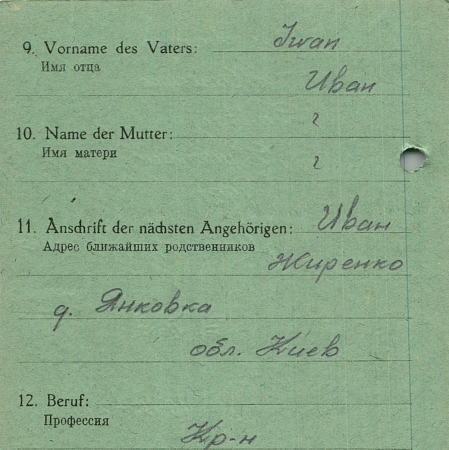 9. Vorname des Vaters: Iwan
Имя отца
Иван
10. Name der Mutter: ?
Имя матери
?
11. Anschrift der nächsten Angehörigen: Иван
Адрес ближайших родственников
Жиренко
д. Янковка
обл. Киев
12. Beruf:
Профессия
Кр-н